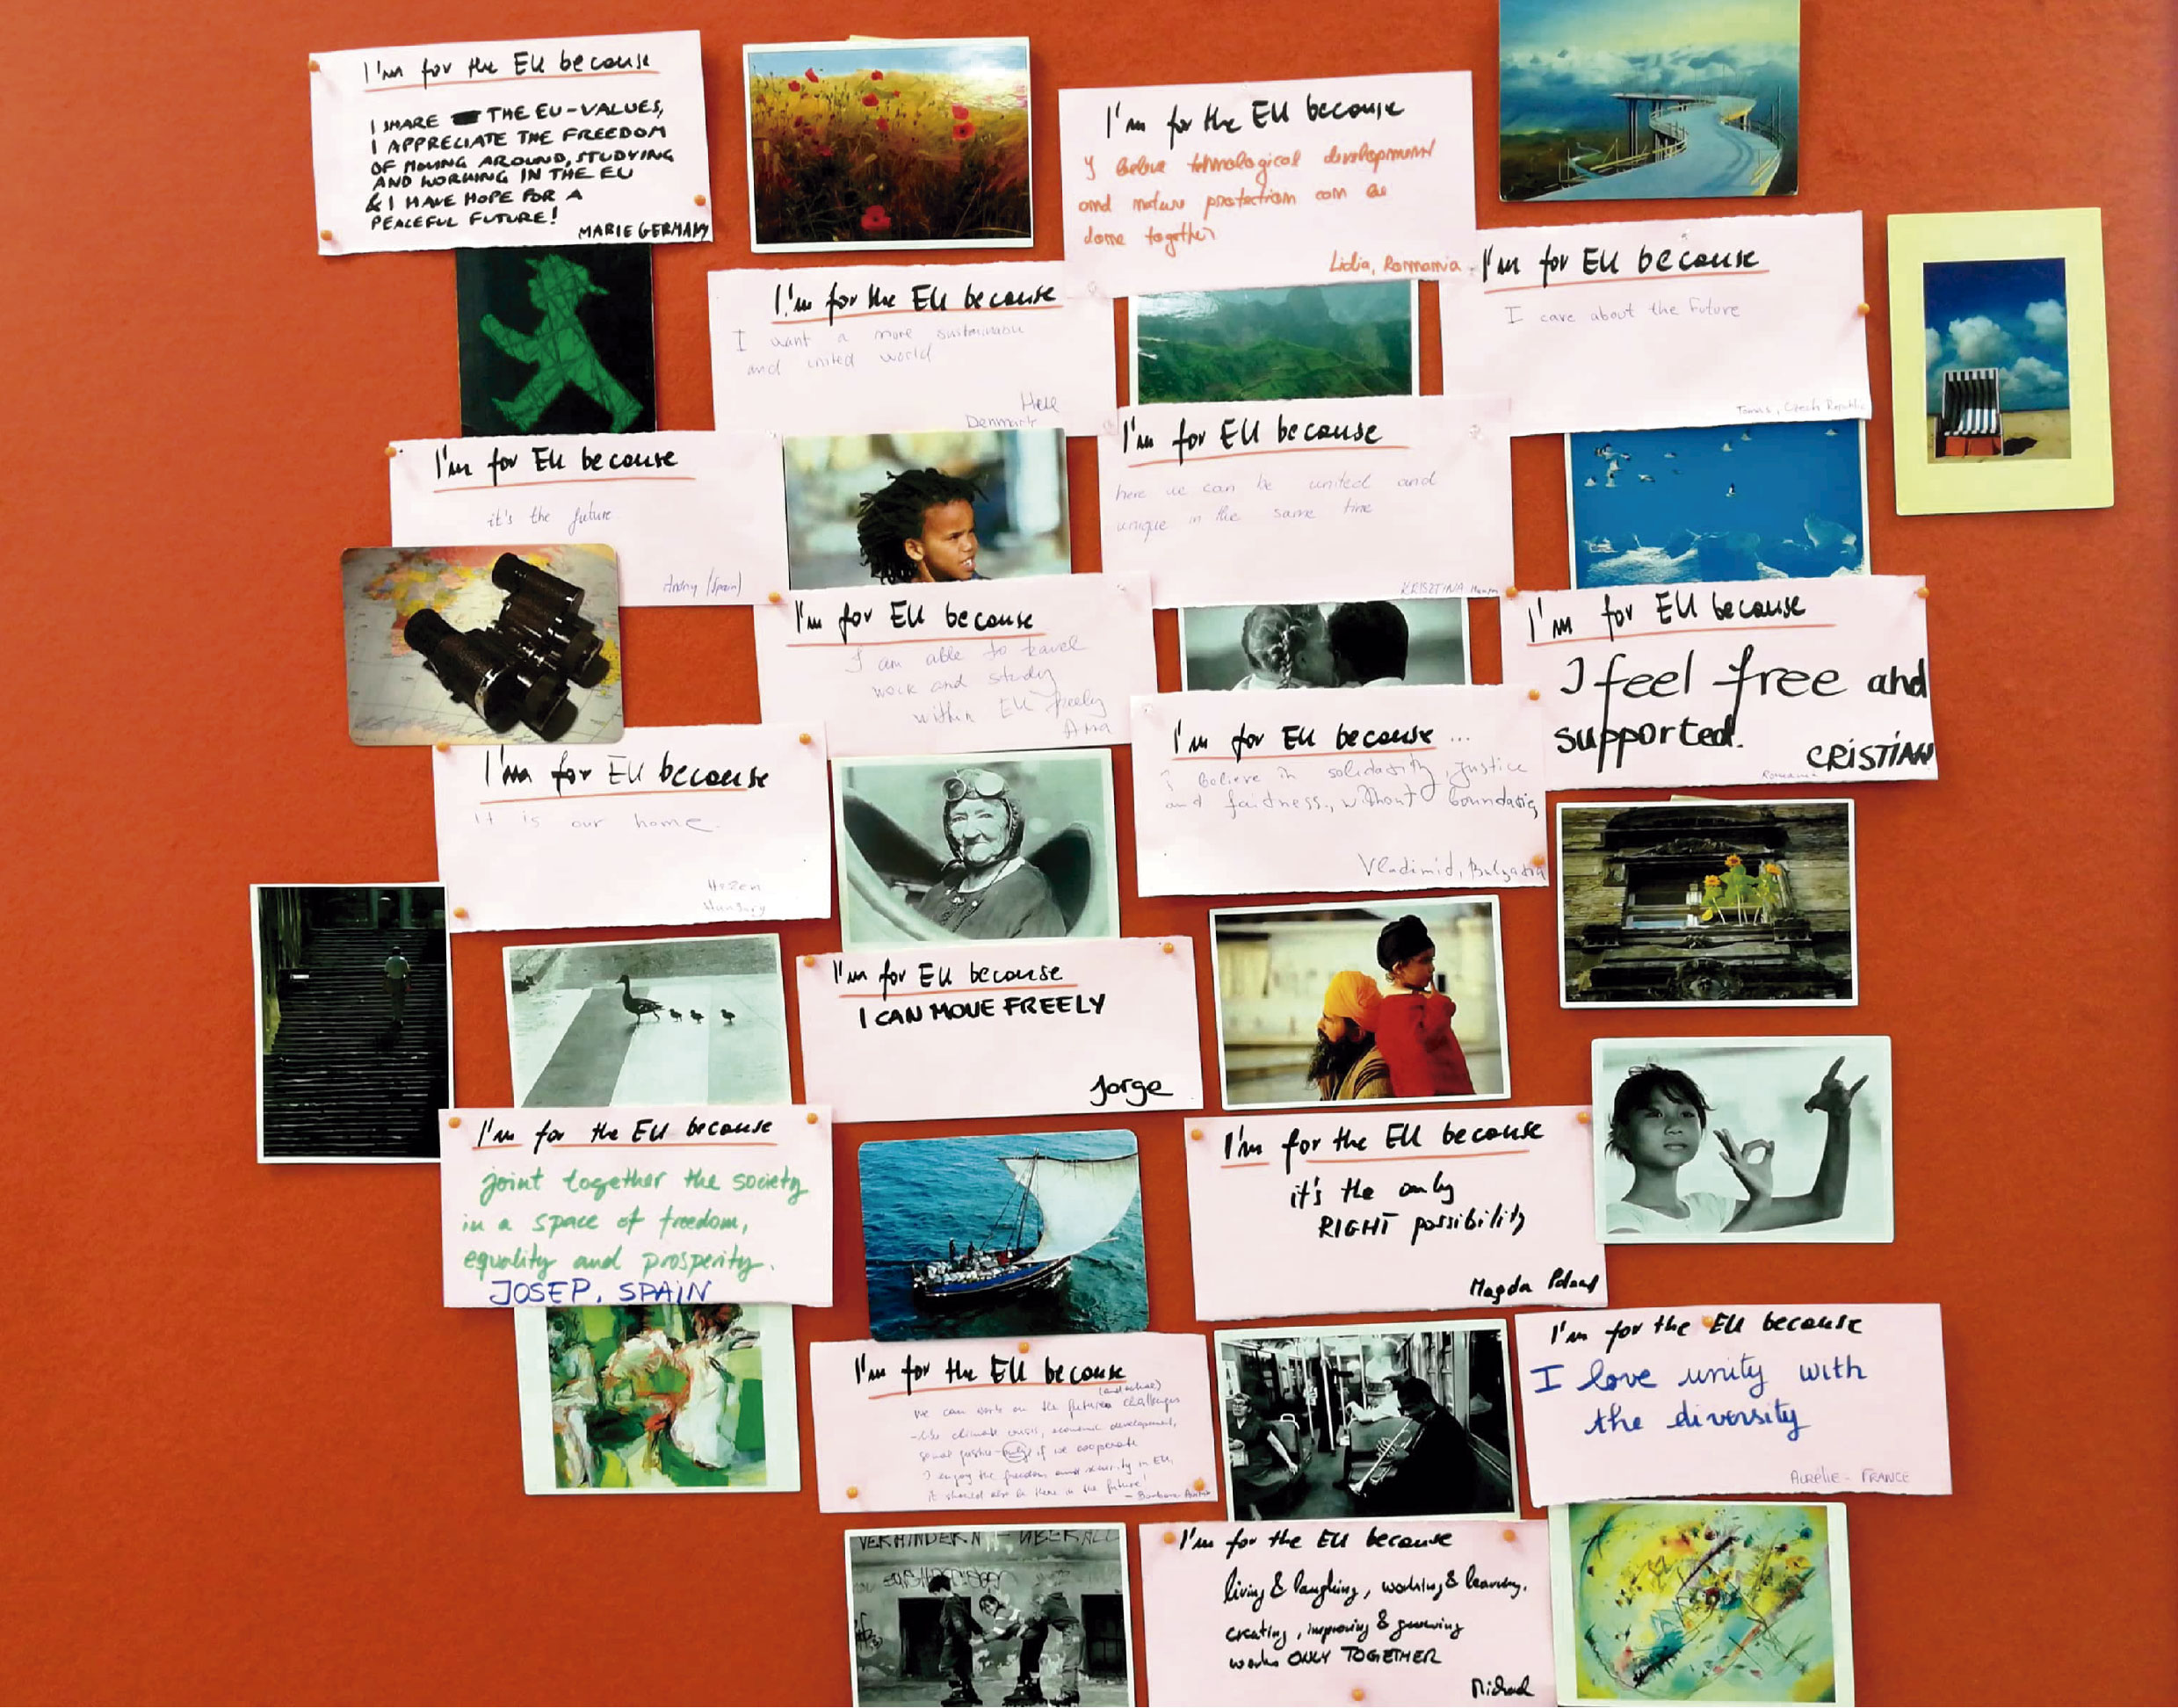 I'm for the EU because
I SHARE THE EU-VALUES,
I APPRECIATE THE FREEDOM
OF MOVING AROUND, STUDYING
AND WORKING IN THE EU
& I HAVE HOPE FOR A
PEACEFUL FUTURE!
MARIE GERMANY
I'm for the EU because
I belive tehnological development
and nature protection can be
done together
Lidia, Romania
I'm for the EU because
I want a more sustainable
and united world
Denmark
I'm for EU because
I care about the future
Tomas, Czech Republic
I'm for EU because
it's the future
(Spain)
I'm for EU because
here we can be united and
unique in the same time
KRISZTINA
I'm for EU because
I am able to travel
work and study
within EU freely
Ana
I'm for EU because
I feel free and
supported.
CRISTIAN
Romania
I'm for EU because
It is our home.
Hungary
I'm for EU because ...
I believe in solidarity, justice
and fairness, without boundaries
Vladimir, Bulgaria
I'm for EU because
I CAN MOVE FREELY
Jorge
I'm for the EU because
joint together the society
in a space of freedom,
equality and prosperity.
JOSEP, SPAIN
I'm for the EU because
it's the only
RIGHT possibility
Magda Poland
I'm for the EU because
(and actual)
we can work on the future challenges
- like climate crisis, economic development,
social justice - only if we cooperate
I enjoy the freedom and security in EU,
it should also be there in the future!
- Barbara
I'm for the EU because
I love unity with
the diversity
AURÉLIE - FRANCE
VERHINDERN ÜBERALL
I'm for the EU because
living & laughing, working & learning,
creating, improving & growing
works ONLY TOGETHER
Michael